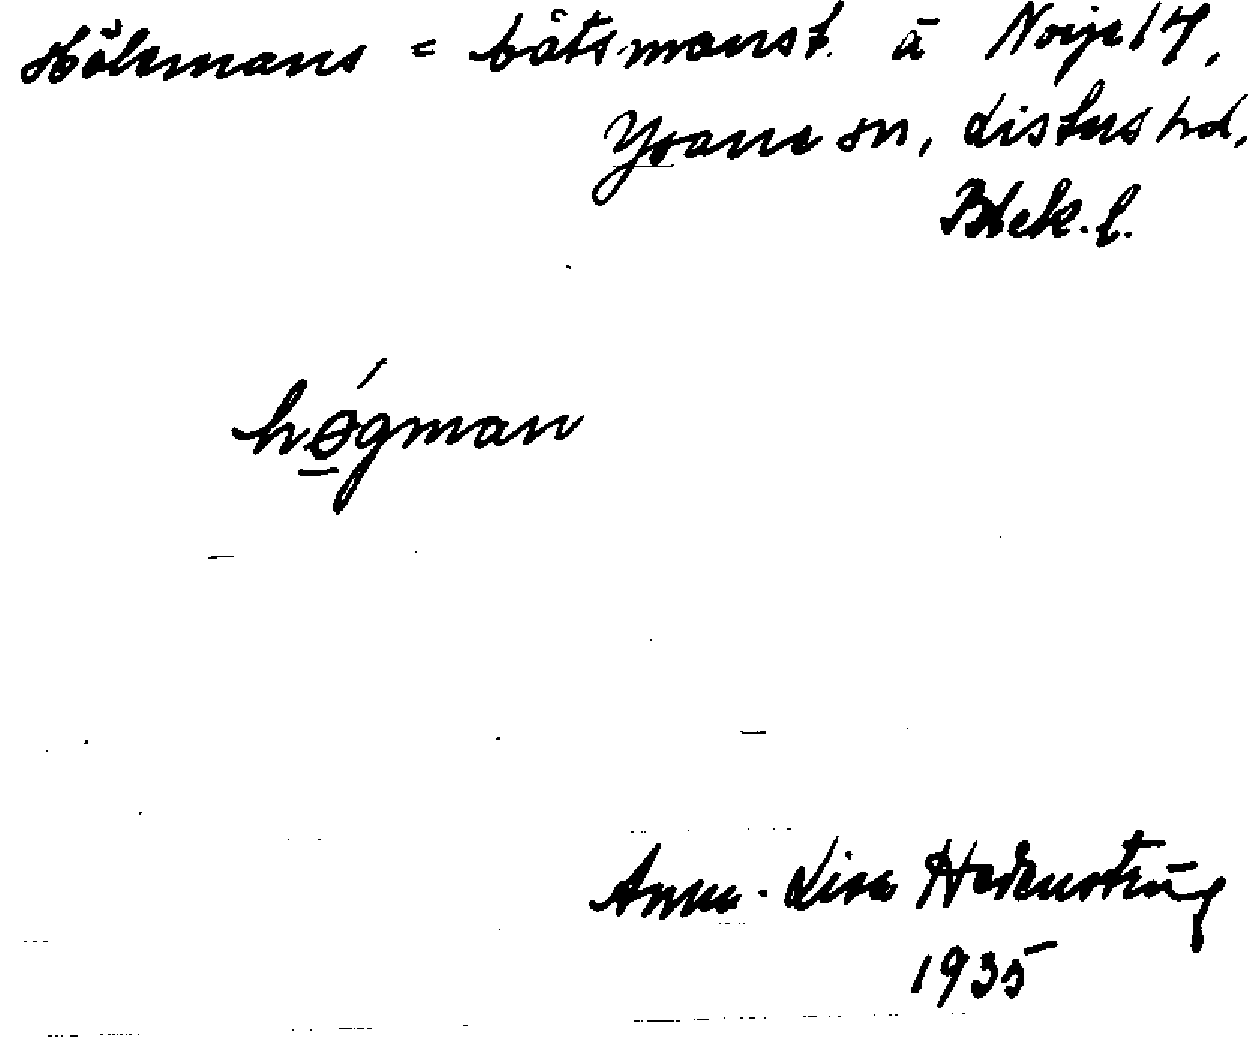 Hökmans = båtsmanst. å Norje 17,
Ysane sn, Listers hd,
Blek. l.
hǿgman
Anna-Lisa Hedenström
1935